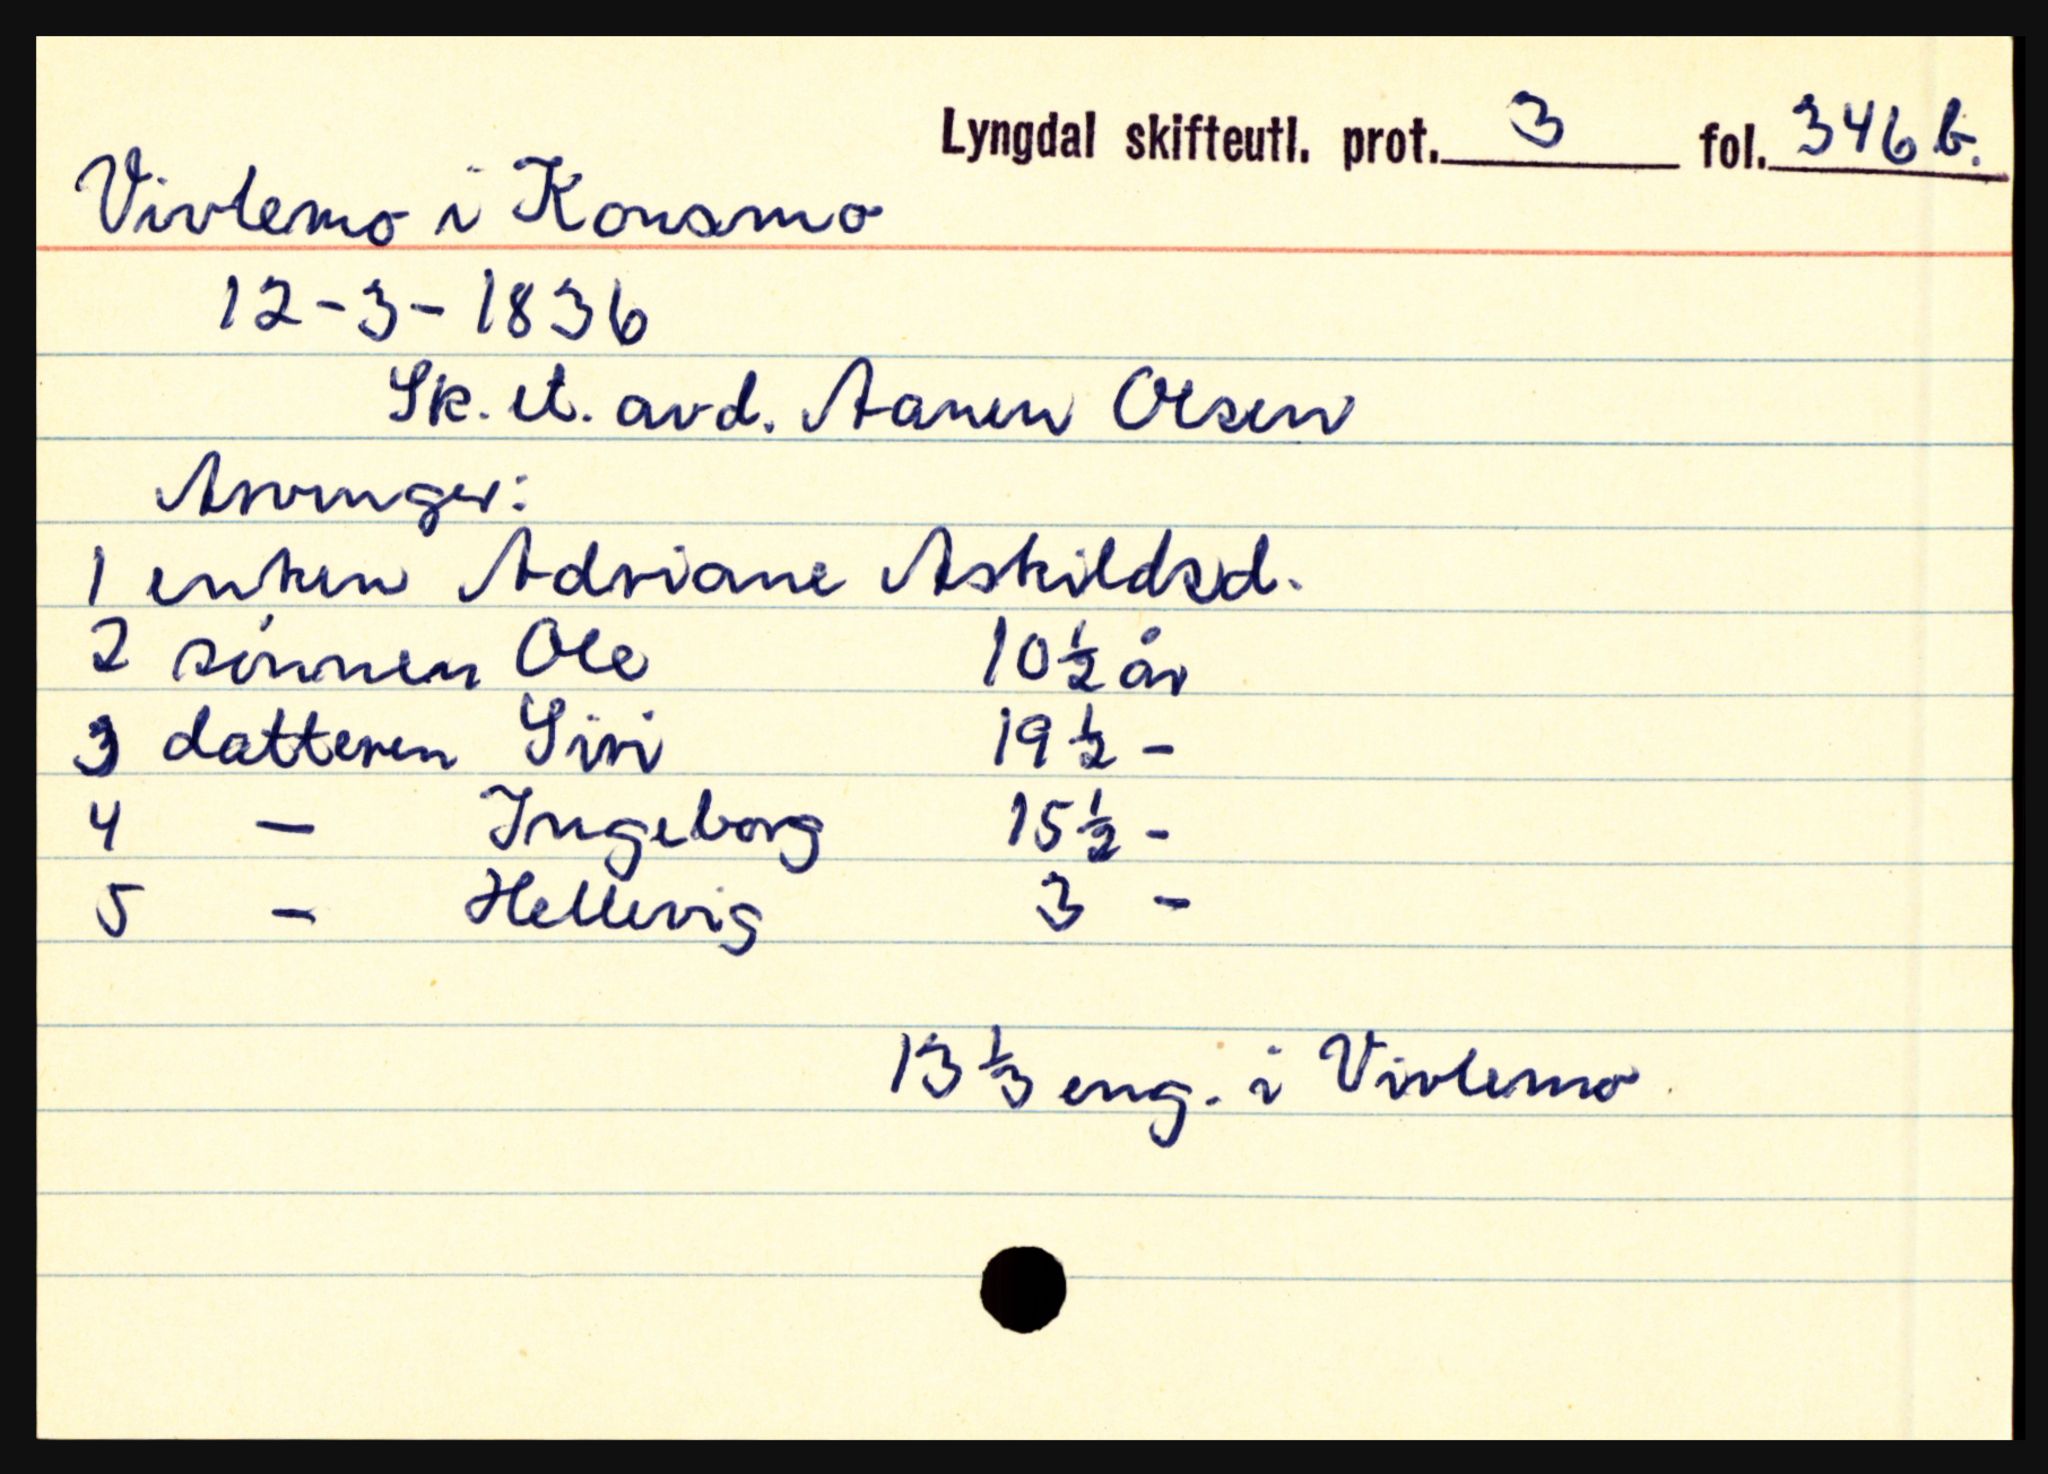 Lyngdal skifteutl. prot. 3 fol. 346 b.
Vivlemo i Konsmo
12-3-1836
Sk. et. avd. Aanen Olsen
Arvinger:
1 enken Adriane Askildsd.
2 sønnen Ole 10 1/2 år
3 datteren Siri 19 1/2 -
4 - Ingeborg 15 1/2 -
5 - Hellevig 3 -
13 1/3 eng. i Vivlemo